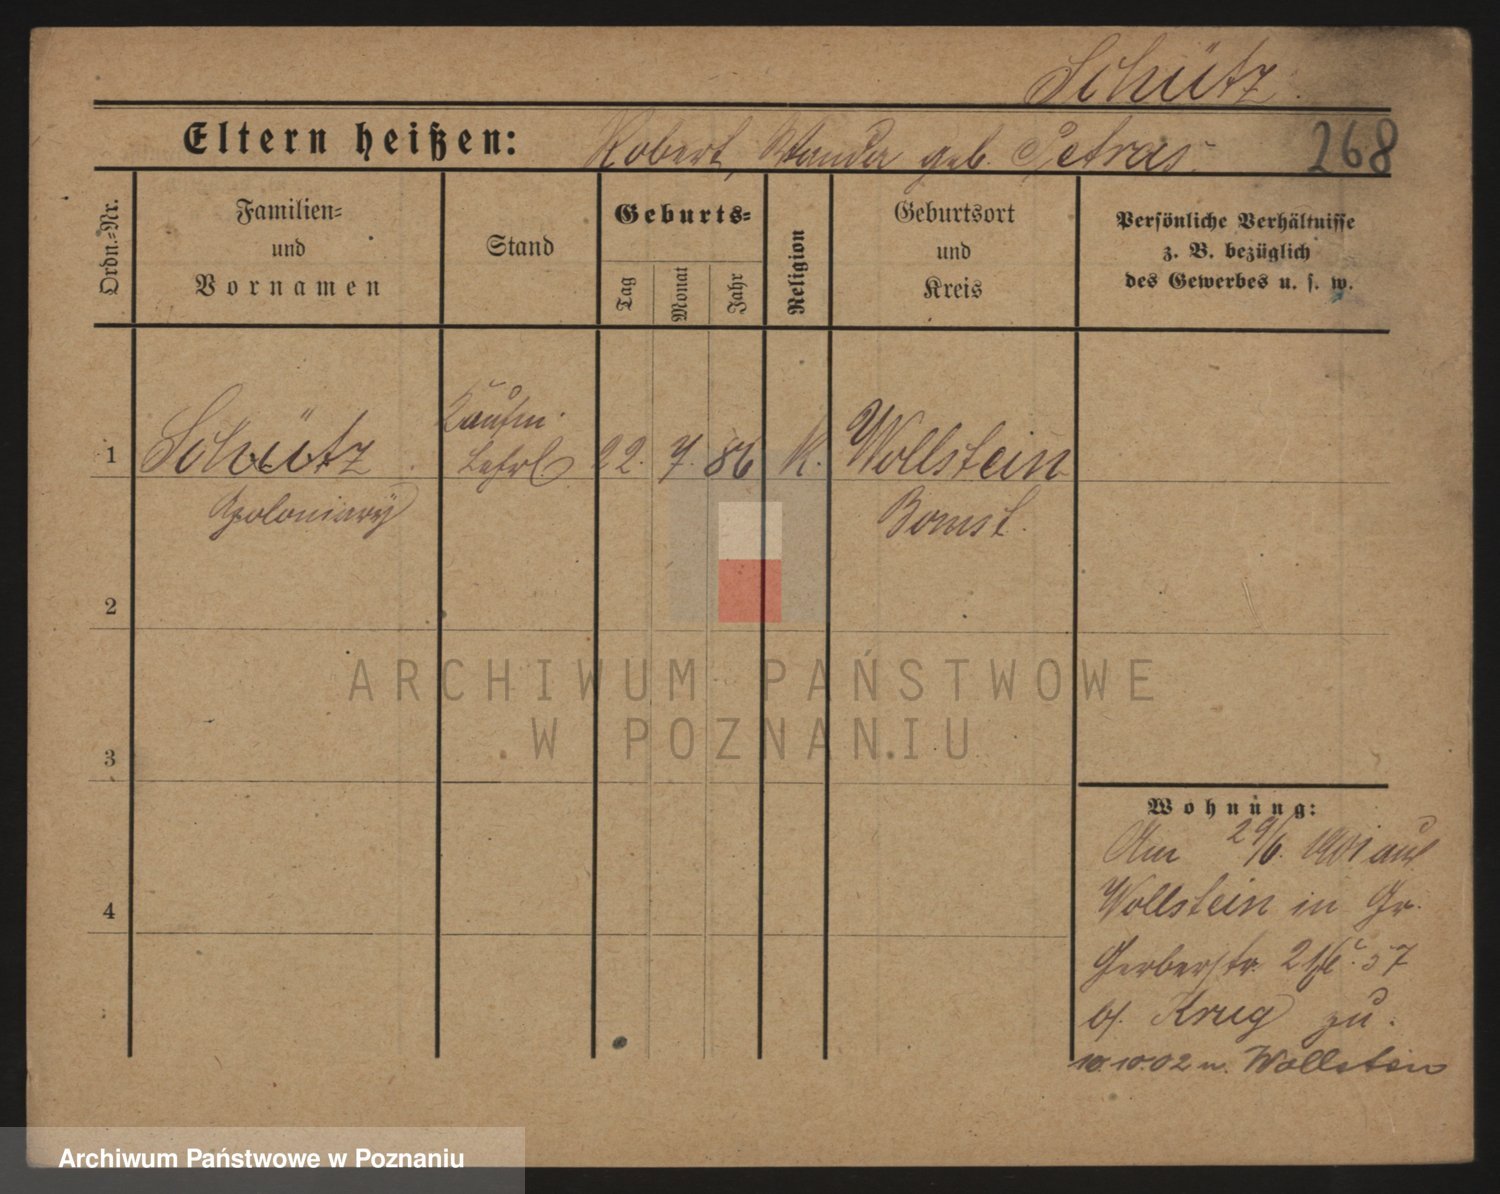 Schütz.
Eltern heißen: Robert, Wanda geb. Petras.
268
Ordn.-Nr.
Familien-
und
Vornamen
Stand
Geburts-
Tag
Monat
Jahr
Religion
Geburtsort
und
Kreis
Persönliche Verhältnisse
z. B. bezüglich
des Gewerbes u. s. w.
Kaufm.
1 Schütz Lehrl. 22. 7. 86 K. Wollstein
Bomst.
2
ARCHIWUM PAŃSTWOWE
W POZNANIU
3
Wohnung:
Am 29/6. 1901 aus
4
Wollstein in Gr.
Gerberstr.
b/. Krug zu.
10.10.02 n. Wollstein
Archiwum Państwowe w Poznaniu